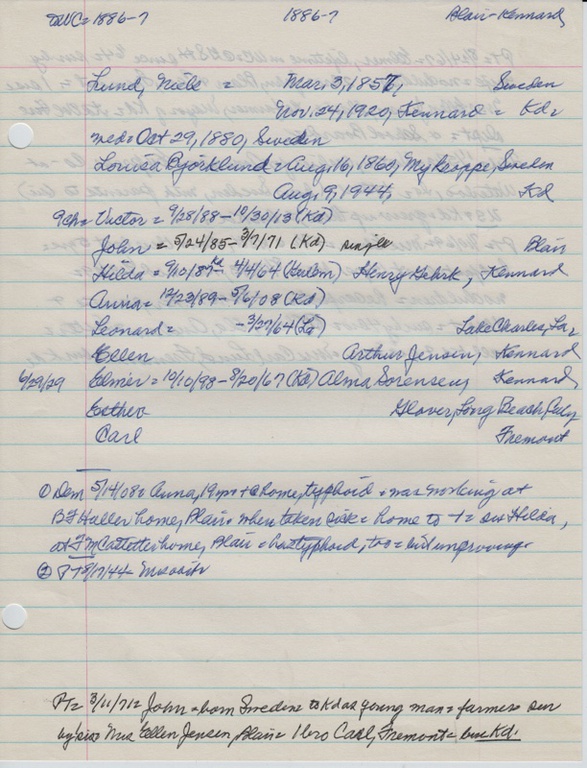 WC= 1886-7 1886-7 Blair-Kennard
Lund, Niels = Mar. 3, 1857, Sweden
Nov. 24, 1920, Kennard = Kd=
med= Oct 29, 1880, Sweden
Louisa Bjorklund= Aug. 16, 1860, Sweden
Aug. 9, 1944, Kd
9ch= Victor = 9/28/88- 10/30/13 (Kd)
John = 5/24/85- 3/7/71 (Kd) single Blair
Hilda = 9/10/87- 4/4/64 Henry Gehrk, Kennard
Anna= 12/23/89- 5/6/08 (Kd)
Leonard= -3/27/64 (La) Lake Charles, La,
Ellen Arthur Jensen, Kennard
6/29/29 Elmer= 10/10/98- 8/20/67 (Kd) Alma Sorensen, Kennard,
Esther Glover, Long Beach,
Carl Fremont
① Dem 5/14/08= Anna, 19yrs + @ home, typhoid = was working at
B F Haller home, Blair= when taken sick = home to = sis Hilda,
at home, Blair = has typhoid, too = but improving.
② PT 8/17/44-
PT= 3/11/71= John = born Sweden= to Kd as young man= farmer= sur
by sis= Mrs Ellen Jensen, Blair= 1 bro Carl, Fremont= bur Kd.